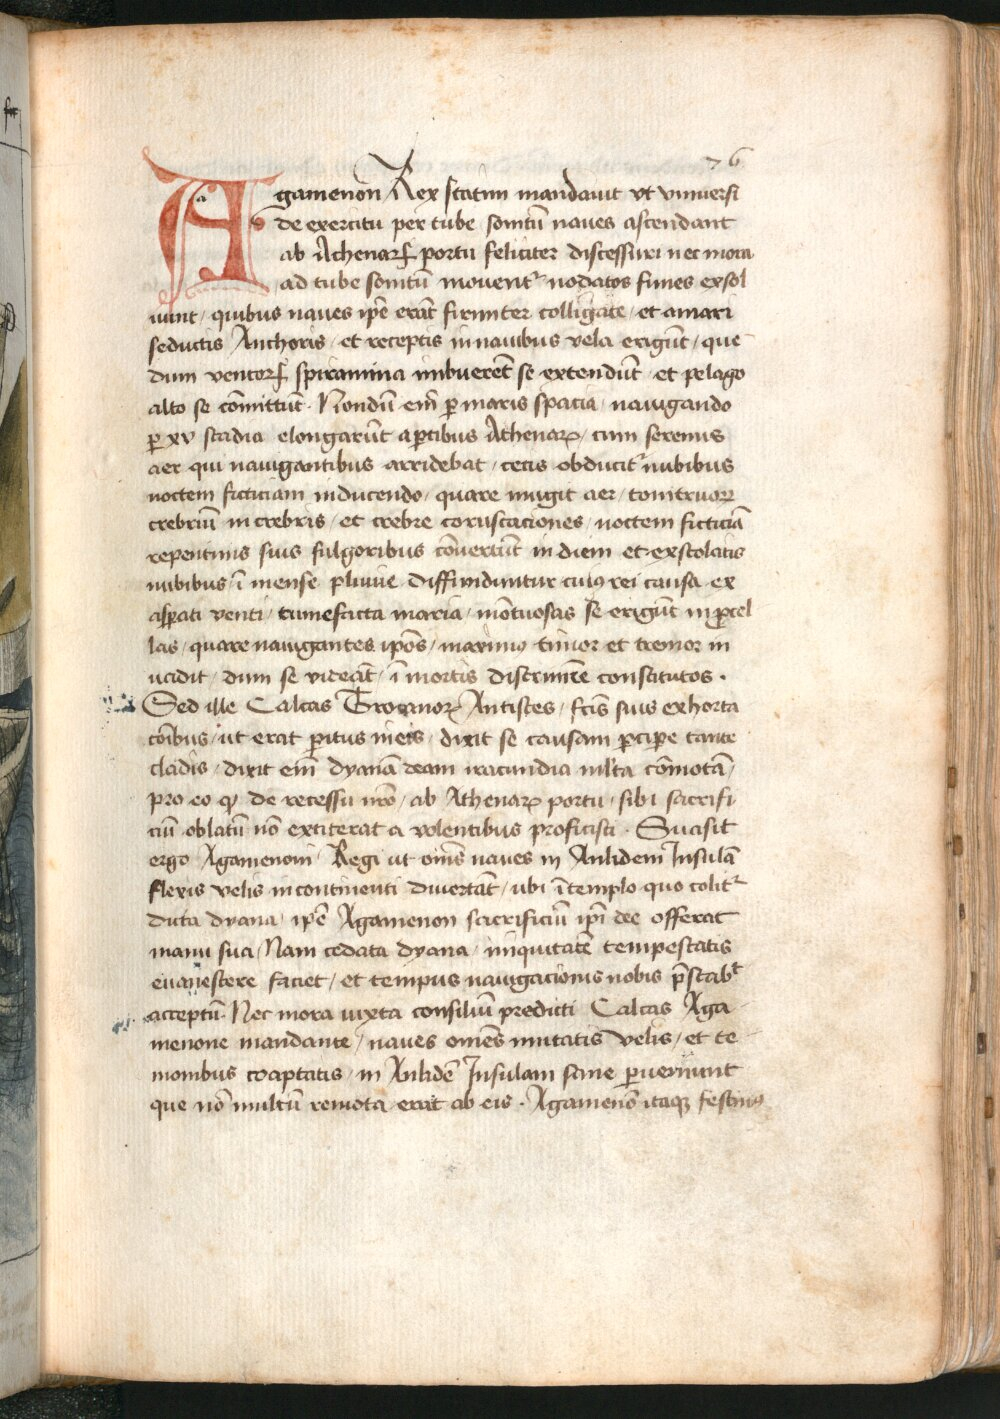 76
Agamenon Rex statim mandauit vt vniuersi
de exercitu per tube sonitū naues ascendant
ab Athenarꝝ portu feliciter discessuri nec mora
ad tube sonitū mouentʳ nodatos funes exsol
uunt / quibus naues ip̄e erāt firmiter colligate / et a mari
seductis Anchoris / et receptis in nauibus vela erigūt / que
dum ventorꝝ spiramina imbuerēt se extendūt / et pelago
alto se cōmittūt · Nondū em̄ ꝑ maris spacia / nauigando
ꝑ xv stadia elongarūt a ꝑtibus Athenarꝝ / cum serenus
aer qui nauigantibus arridebat / cecis obducitʳ nubibus
noctem ficticiam inducendo / quare mugit aer / tonitruorꝝ
crebriū in crebris / et crebre coruscaciones / noctem ficticiā
repentinis suis fulgoribus cōuertūt in diem et exscolatis
nubibus / ī mense pluuie diffunduntur cuiꝯ rei causa ex
asꝑati venti / tumefacta maria / mōtuosas se erigūt in ꝓcel
las / quare nauigantes ip̄os / maximꝯ timor et tremor in
ucidit / dum se videāt / ī mortis discrimīe constitutos ·
Sed ille Calcas Troyanorꝝ Antistes / fc̄is suis exhorta
cōibus / ut erat ꝑitus in eis / dixit se causam ꝑciꝑe tante
cladis / dixit em̄ dyanā deam iracundia ml̄ta cōmotā /
pro eo ꝙ de recessu nr̄o / ab Athenarꝝ portu / sibi sacrifi
ciū oblatū nō extiterat a volentibus proficisci · Suasit
ergo Agamenoni Regi ut oīns naues in Anlidem Insulā
flexis velis incontinenti diuertāt / ubi ī templo quo colitʳ
dicta dyana / ip̄e Agamenon sacrificiū ip̄i dee offerat
manu sua / Nam cedata dyana / iniquitatē tempestatis
euanescere faciet / et tempus nauigacionis nobis p̄stabᵗ
acceptū · Nec mora iuxta consiliū predicti Calcas Aga
menone mandante / naues omēs mutatis velis / et te
monibus coaptatis / in Anlidē Insulam sane ꝑuenıunt
que nō multū remota erat ab eis · Agamenō itaqꝫ festinꝯ